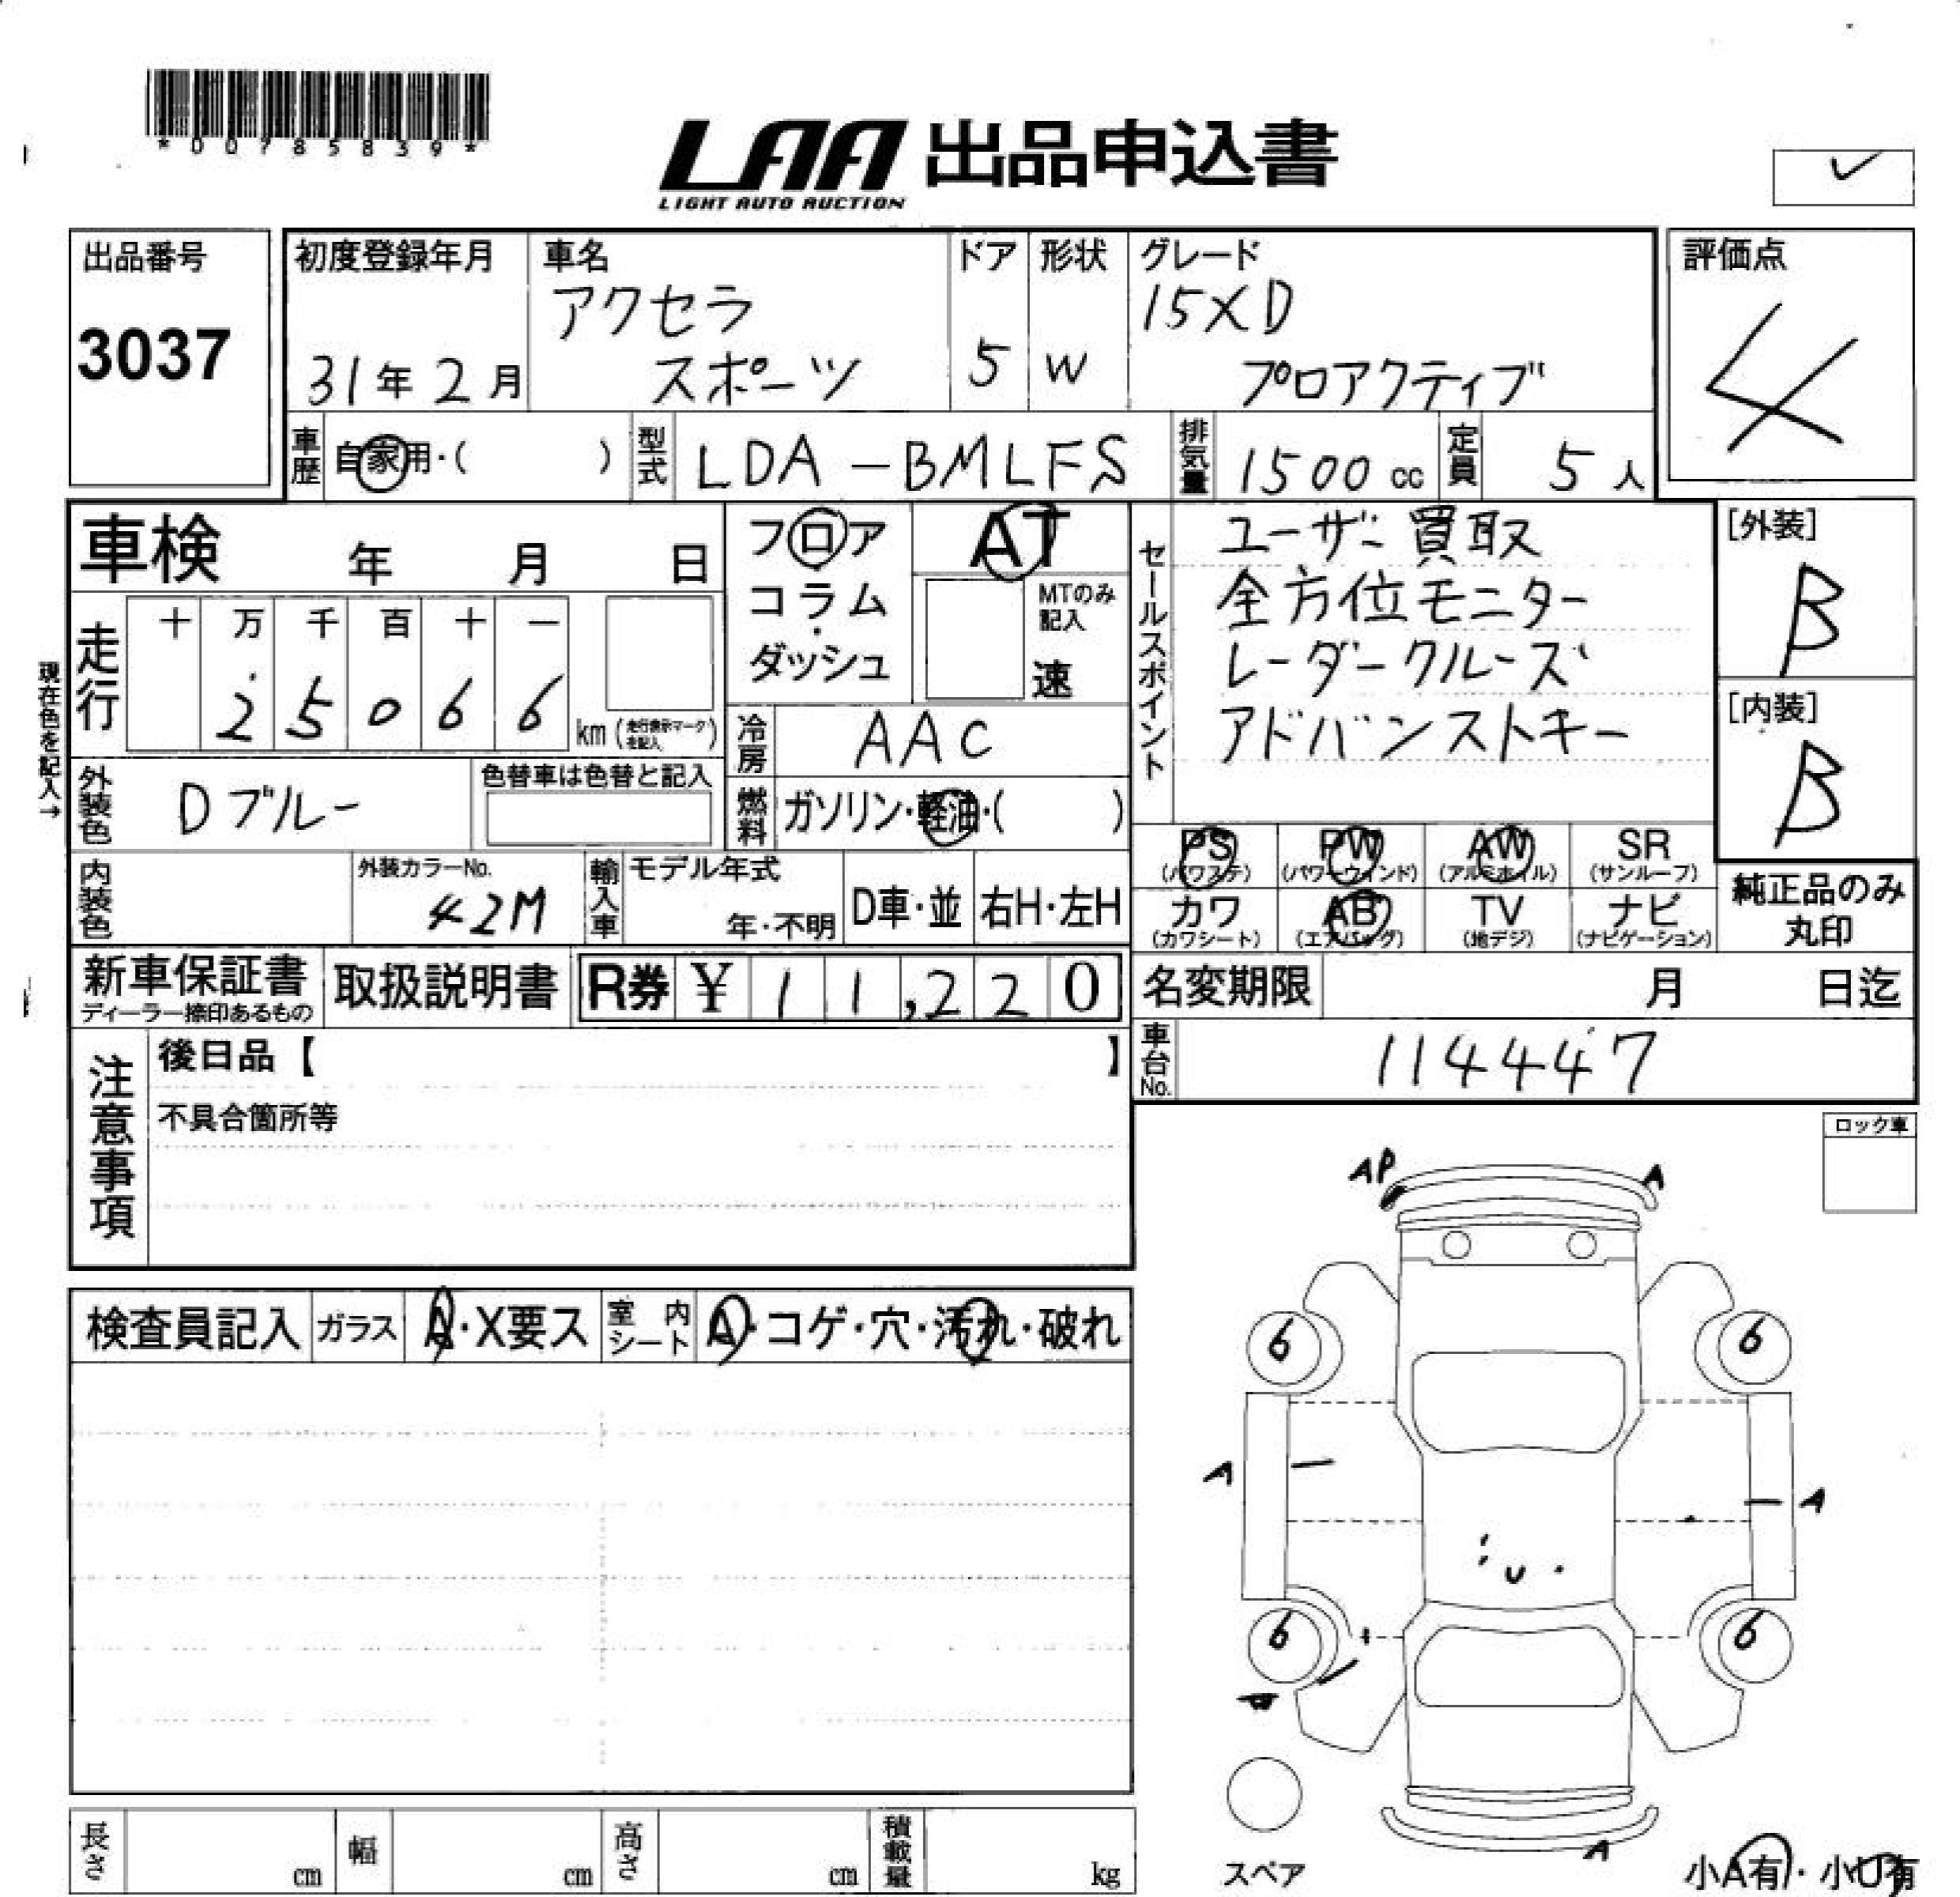 *00785839*
LAA 出品申込書
LIGHT AUTO AUCTION
出品番号
3037
初度登録年月
31年2月
車名
アクセラ
スポーツ
ドア
5
形状
W
グレード
15XD
プロアクティブ
評価点
4
車歴
自家用・( )
型式
LDA-BMLFS
排気量
1500cc
定員
5人
車検 年 月 日
フロア・コラム・ダッシュ
AT
MTのみ記入
速
セールスポイント
ユーザー買取
全方位モニター
レーダークルーズ
アドバンストキー
[外装]
B
[内装]
B
現在色を記入→
走行
十 万 千 百 十 一
2 5 0 6 6 km(走行表示マークを記入)
冷房
AAC
外装色
Dブルー
色替車は色替と記入
燃料
ガソリン・軽油・( )
PS
(パワステ)
PW
(パワーウィンド)
AW
(アルミホイル)
SR
(サンルーフ)
カワ
(カワシート)
AB
(エアバッグ)
TV
(地デジ)
ナビ
(ナビゲーション)
純正品のみ
丸印
内装色
外装カラーNo.
42M
輸入車
モデル年式
年・不明
D車・並
右H・左H
新車保証書
ディーラー捺印あるもの
取扱説明書
R券 ¥11,220
名変期限 月 日迄
車台No.
114447
注意事項
後日品【 】
不具合箇所等
ロック車
検査員記入
ガラス
A・X要ス
室内シート
A・コゲ・穴・汚れ・破れ
AP
A
6
6
A
A
U
6
6
W
A
スペア
小A有・小U有
長さ cm
幅 cm
高さ cm
積載量 kg